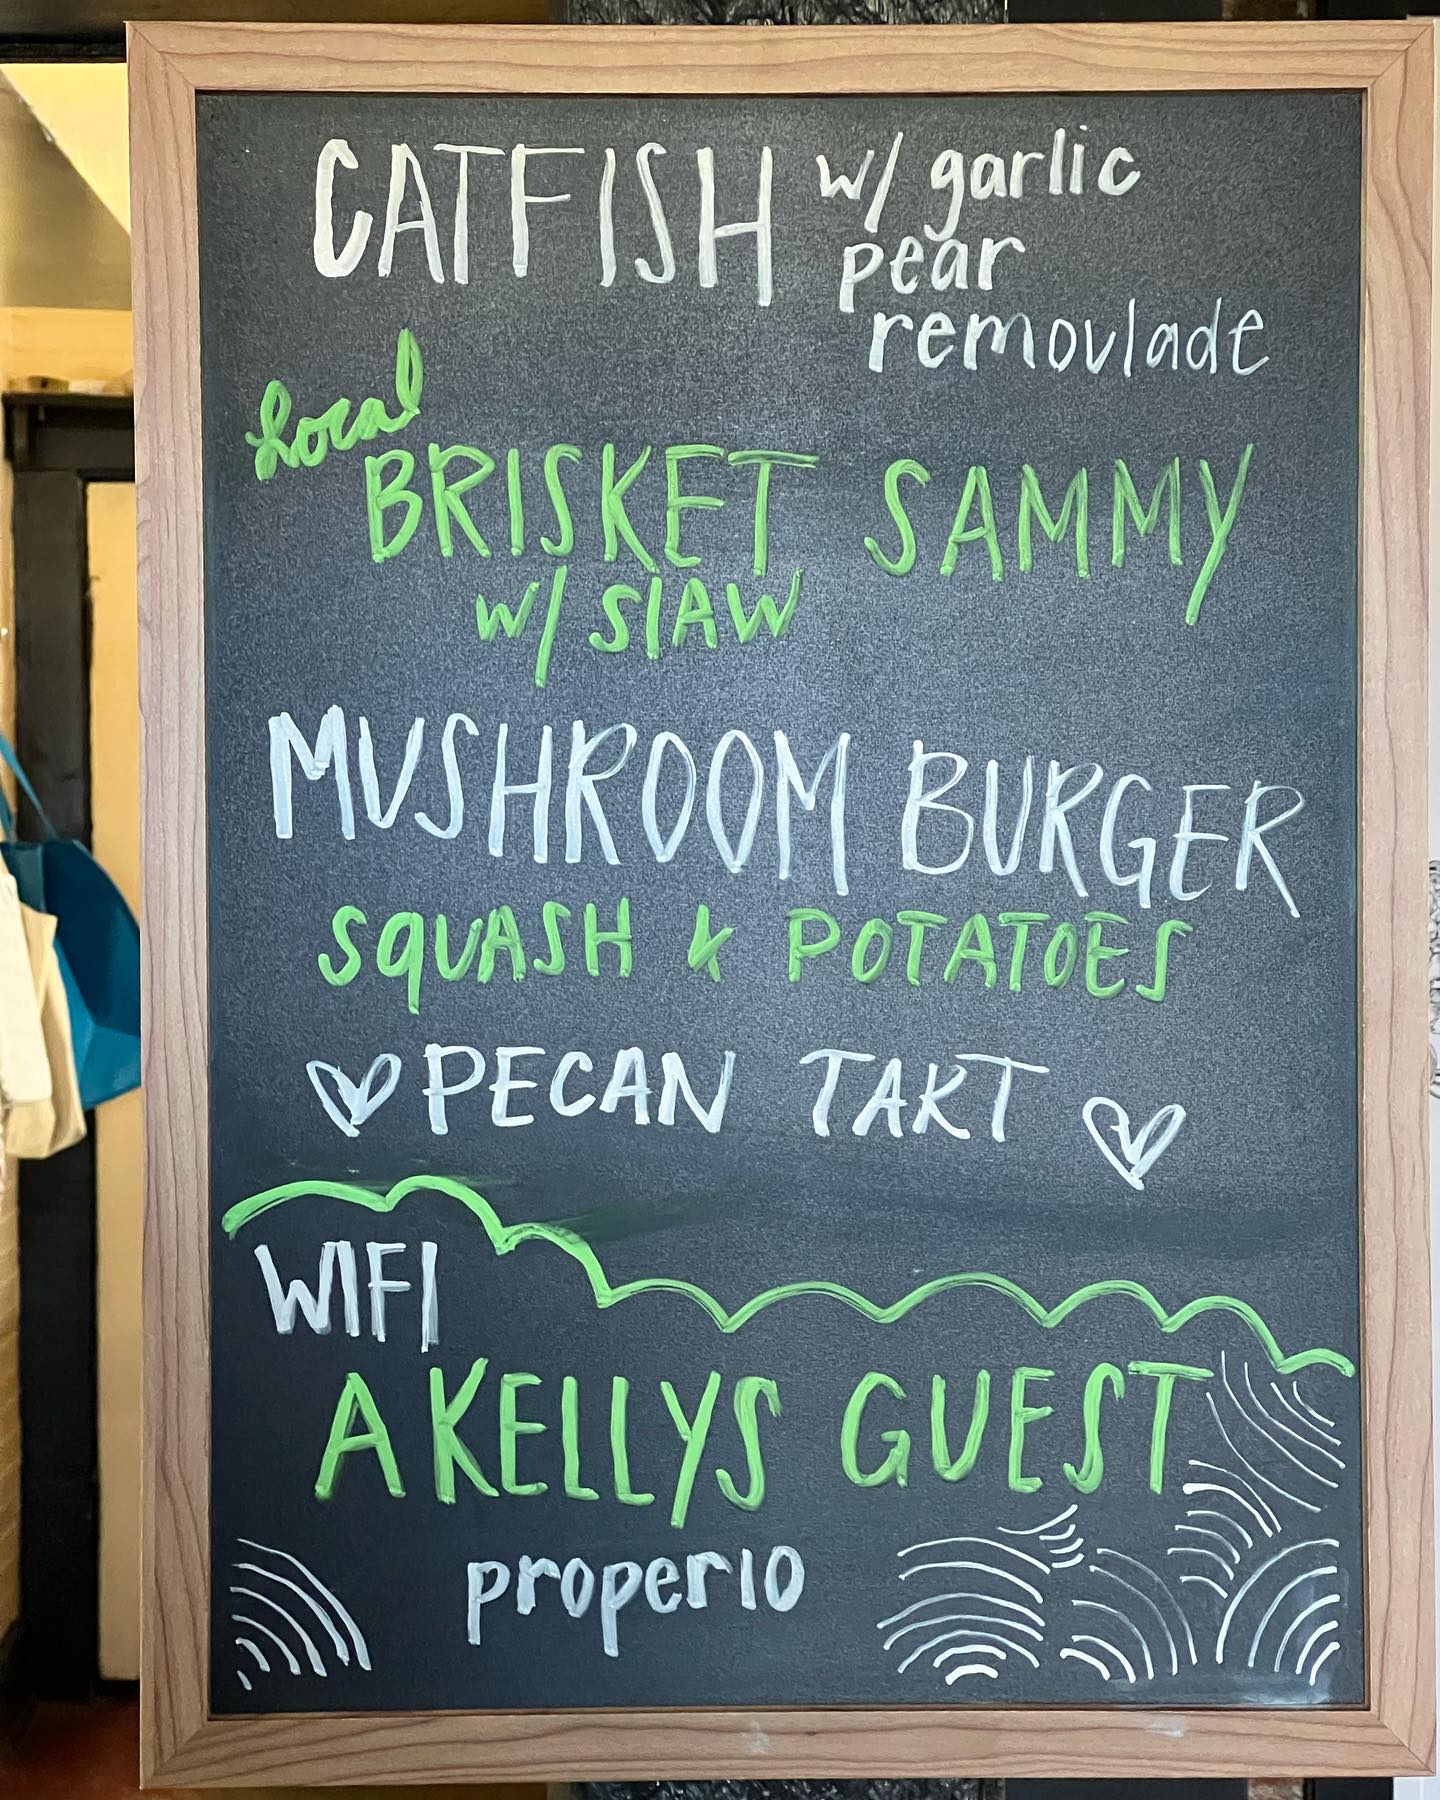 CATFISH w/ garlic
pear
remoulade
local
BRISKET SAMMY
w/ SlAW
MUSHROOM BURGER
SQUASH & POTATOES
PECAN TART
WIFI
AKELLYS GUEST
proper10